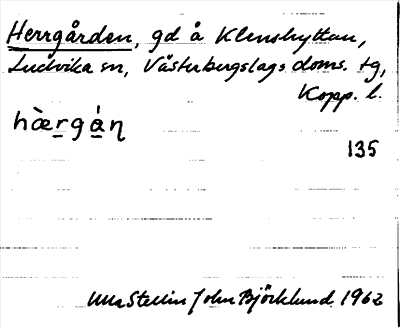 Herrgården, gd å Klenshyttan,
Ludvika sn, Västerbergslags doms. tg,
Kopp. l.
hæ̀rgáṇ
135
Ulla Stellin John Björklund 1962